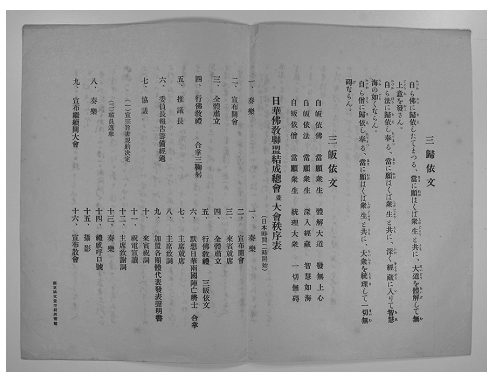 三歸依文
自ら佛に歸依したてまつる、當に願はくば衆生と共に、大道を體解して無
上意を發さん。
自ら法に歸依し奉る、當に願はくば衆生と共に、深く經藏に入りて智慧
海の如くならん。
自ら僧に歸依し奉る、當に願はくば衆生と共に、大衆を統理して一切無
礙ならん。
三皈依文
自皈依佛 當願衆生 體解大道 發無上心
自皈依法 當願衆生 深入經藏 智慧如海
自皈依僧 當願衆生 統理大衆 一切無礙
日華佛教聯盟結成總會並大會秩序表
一、奏樂
二、宣布開會
三、全體肅立
四、行佛教禮 合掌三鞠躬
五、推議長
六、委員長報告籌備經過
七、協議
八、奏樂
九、宣布繼續開大會
一、奏樂
二、宣布開會
三、來賓就席
四、全體肅立
五、行佛教禮 三皈依文
六、默想日華兩國陣亡將士 合掌
七、主席就席
八、主席致詞
九、加盟各團體代表發表聲明書
十、來賓祝詞
十一、祝電宣讀
十二、主席致謝詞
十三、奏樂
十四、禮成呼口號
十五、攝影
十六、宣布散會